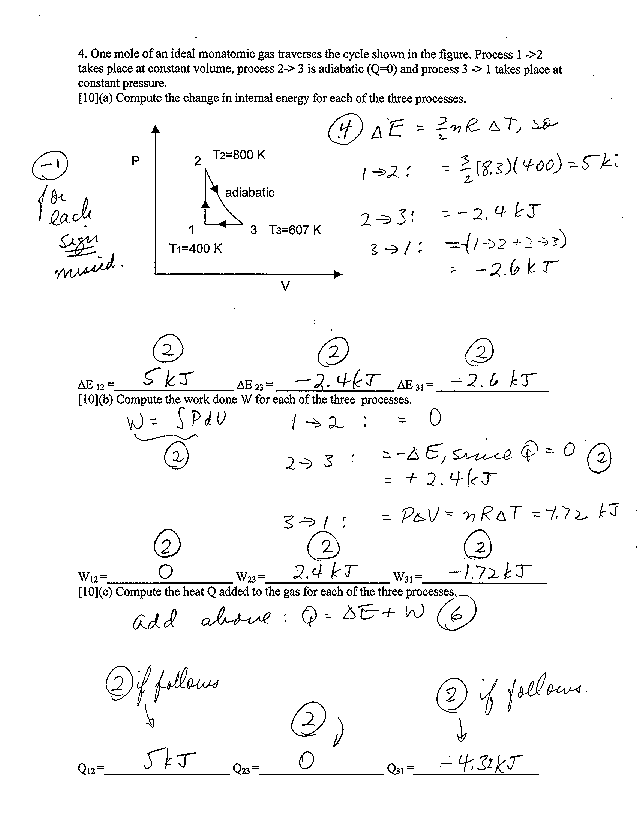 4. One mole of an ideal monatomic gas traverses the cycle shown in the figure. Process 1 ->2
takes place at constant volume, process 2-> 3 is adiabatic (Q=0) and process 3 -> 1 takes place at
constant pressure.
[10](a) Compute the change in internal energy for each of the three processes.
4 ΔE = 3/2 nR ΔT, so
-1
for
each
sign
missed.
P
2 T2=800 K
adiabatic
1 3 T3=607 K
T1=400 K
V
1→2: = 3/2 (8.3)(400) = 5 kJ
2→3: = -2.4 kJ
3→1: = -(1→2 + 2→3)
= -2.6 kJ
2 2 2
ΔE 12 = 5 kJ ΔE 23 = -2.4 kJ ΔE 31 = -2.6 kJ
[10](b) Compute the work done W for each of the three processes.
W = ∫PdV 1→2 : = 0
2
2→3 : = -ΔE, since Q = 0 2
= + 2.4 kJ
3→1 : = PΔV = nRΔT = 1.72 kJ
2 2 2
W12= 0 W23= 2.4 kJ W31= -1.72 kJ
[10](c) Compute the heat Q added to the gas for each of the three processes.
add above : Q = ΔE + W 6
2 if follows
2
2 if follows.
Q12= 5 kJ Q23= 0 Q31= -4.32 kJ